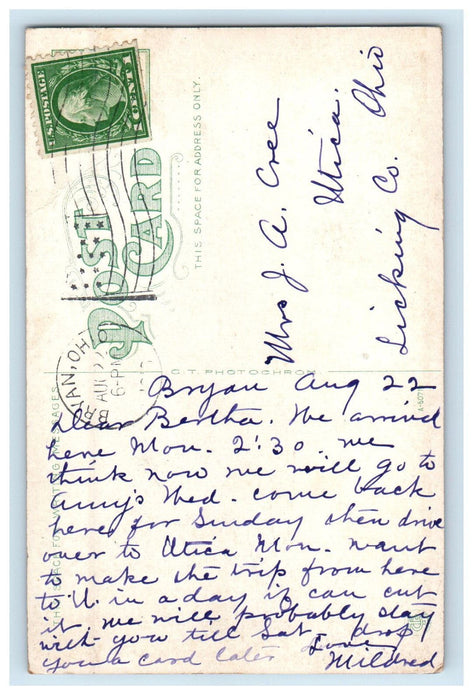 U.S. POSTAGE
1 CENT 1
POST
CARD
THIS SPACE FOR ADDRESS ONLY.
BRYAN, OHIO
AUG
6-PM
Mrs J. A. Cree
Utica.
Licking Co. Ohio
C.T. PHOTOCHROM
Bryan Aug 22
Dear Bertha. We arrived
here Mon. 2:30. we
think now we will go to
Amy's Wed. come back
here for Sunday then drive
over to Utica Mon. want
to make the trip from here
to U. in a day if can cut
it. we will probably stay
with you till Sat - drop
you a card later Love
Mildred